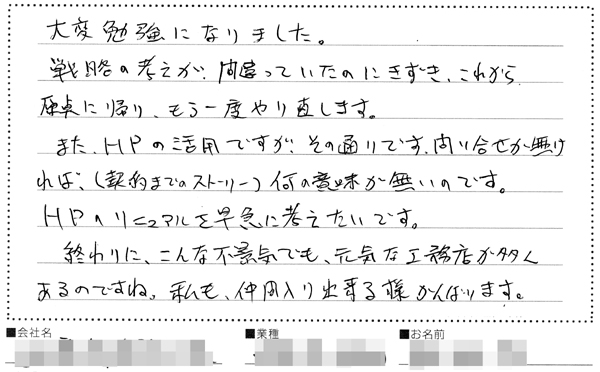 大変勉強になりました。
戦略の考えが、間違っていたのにきずき、これから
原点に帰り、もう一度やり直します。
また、HPの活用ですが、その通りです。問い合せが無け
れば、(契約までのストーリー)何の意味が無いのです。
HPのリニュアルを早急に考えたいです。
終わりに、こんな不景気でも、元気な工務店が多く
あるのですね。私も、仲間入り出来る様がんばります。
■会社名 ■業種 ■お名前